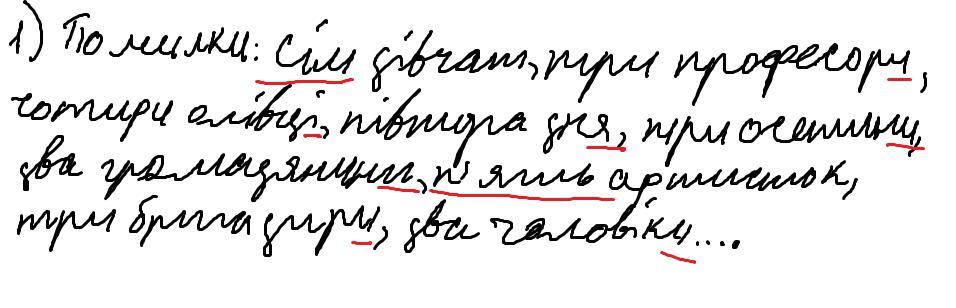 1) Помилки: Сім дівчат, три професори,
чотири олівці, півтора дня, три осетини,
два громадянини, п'ять артисток,
три бригадири, два чоловіки....